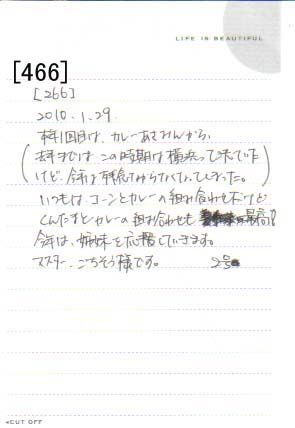 LIFE IS BEAUTIFUL
[466]
[266]
2010.1.29.
本年1回目は、カレーあさみんから。
去年までは この時期は横浜って来ていた
けど、今年は残念ながら
いつもは、コーンとカレーの組み合わせだけど
くんたまとカレーの組み合わせも 最高!!
今年は、姉妹を応援していきます。
マスター、ごちそう様です。 2号